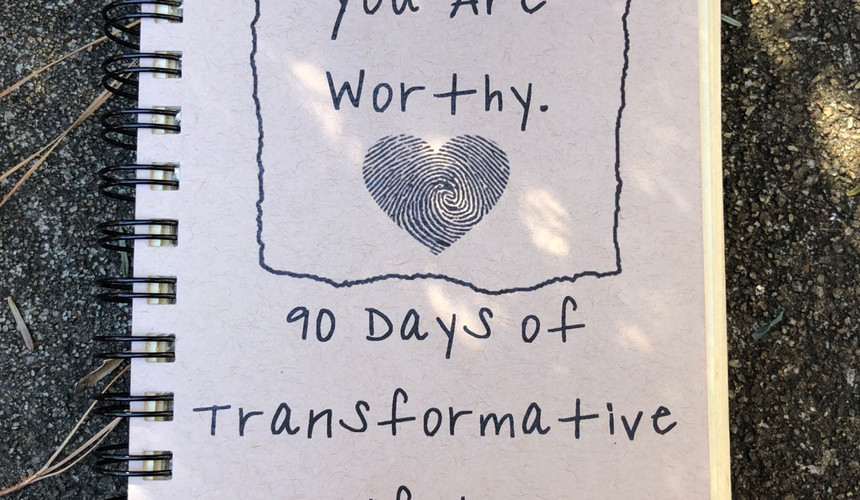 You Are
Worthy.
90 Days of
Transformative